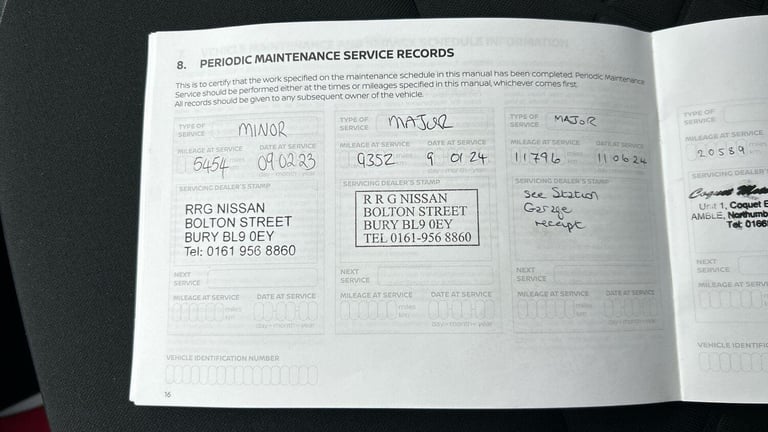 8. PERIODIC MAINTENANCE SERVICE RECORDS
This is to certify that the work specified on the maintenance schedule in this manual has been completed. Periodic Maintenance
Service should be performed either at the times or mileages specified in this manual, whichever comes first.
All records should be given to any subsequent owner of the vehicle.
TYPE OF
SERVICE
MINOR
MILEAGE AT SERVICE
DATE AT SERVICE
5454 miles
km
09 02 23
day - month - year
SERVICING DEALER'S STAMP
RRG NISSAN
BOLTON STREET
BURY BL9 0EY
Tel: 0161 956 8860
NEXT
SERVICE
MILEAGE AT SERVICE
DATE AT SERVICE
miles
km
day - month - year
VEHICLE IDENTIFICATION NUMBER
16
TYPE OF
SERVICE
MAJOR
MILEAGE AT SERVICE
DATE AT SERVICE
9352 miles
km
9 01 24
day - month - year
SERVICING DEALER'S STAMP
R R G NISSAN
BOLTON STREET
BURY BL9 0EY
TEL 0161-956 8860
NEXT
SERVICE
MILEAGE AT SERVICE
DATE AT SERVICE
miles
km
day - month - year
TYPE OF
SERVICE
MAJOR
MILEAGE AT SERVICE
DATE AT SERVICE
11796
11 06 24
day - month - year
SERVICING DEALER'S STAMP
See Station
Garage
receipt
NEXT
SERVICE
MILEAGE AT SERVICE
DATE AT SERVICE
miles
km
day - month - year
TYPE OF
SERVICE
MILEAGE AT SERVICE
20589 miles
km
SERVICING DEALER'S
Coquet
Unit 1, Coquet E
AMBLE, Northumb
Tel: 0166
NEXT
SERVICE
MILEAGE AT SERVI
VEHICLE IDENTIFIC